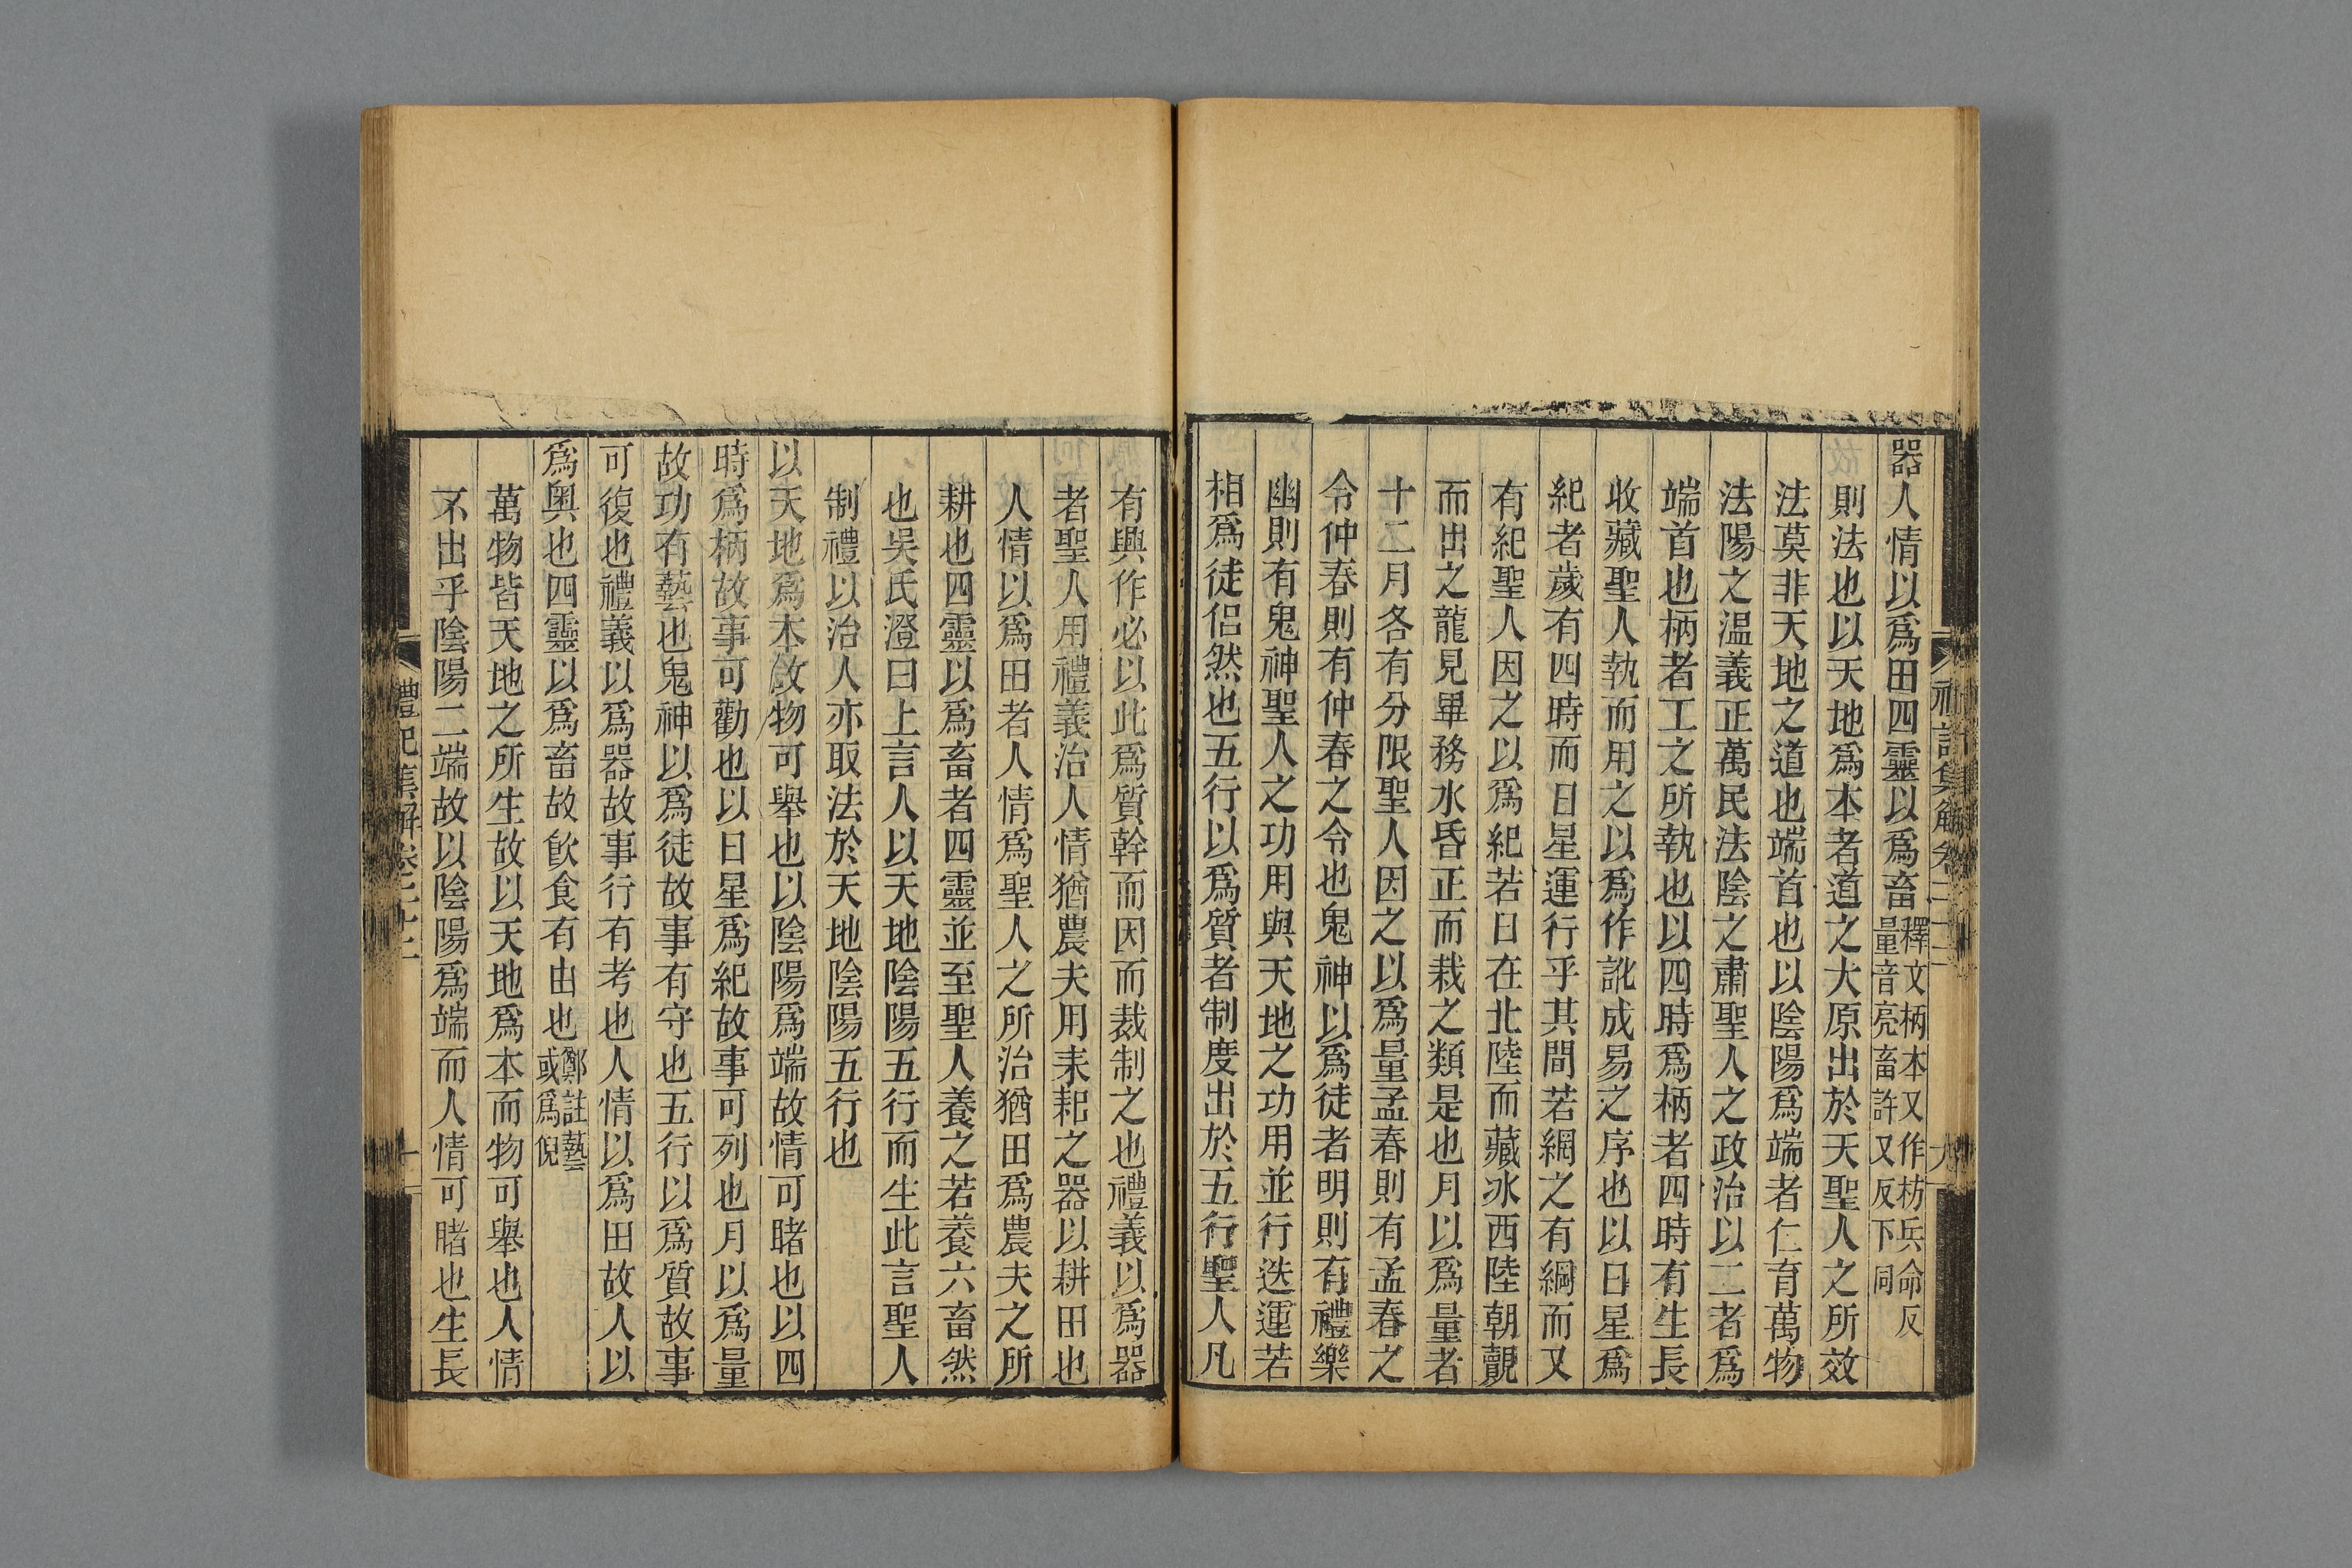 器人情以爲田四靈以爲畜釋文柄本又作枋兵命反量音亮畜許又反下同
則法也以天地爲本者道之大原出於天聖人之所效
法莫非天地之道也端首也以陰陽爲端者仁育萬物
法陽之温義正萬民法陰之肅聖人之政治以二者爲
端首也柄者工之所執也以四時爲柄者四時有生長
收藏聖人執而用之以爲作訛成易之序也以日星爲
紀者歲有四時而日星運行乎其間若網之有綱而又
有紀聖人因之以爲紀若日在北陸而藏冰西陸朝覿
而出之龍見畢務水昏正而栽之類是也月以爲量者
十二月各有分限聖人因之以爲量孟春則有孟春之
令仲春則有仲春之令也鬼神以爲徒者明則有禮樂
幽則有鬼神聖人之功用與天地之功用並行迭運若
相爲徒侣然也五行以爲質者制度出於五行聖人凡
有興作必以此爲質幹而因而裁制之也禮義以爲器
者聖人用禮義治人情猶農夫用耒耜之器以耕田也
人情以爲田者人情爲聖人之所治猶田爲農夫之所
耕也四靈以爲畜者四靈並至聖人養之若養六畜然
也吳氏澄曰上言人以天地陰陽五行而生此言聖人
制禮以治人亦取法於天地陰陽五行也
以天地爲本故物可舉也以陰陽爲端故情可睹也以四
時爲柄故事可勸也以日星爲紀故事可列也月以爲量
故功有藝也鬼神以爲徒故事有守也五行以爲質故事
可復也禮義以爲器故事行有考也人情以爲田故人以
爲奧也四靈以爲畜故飮食有由也鄭註藝或爲倪
萬物皆天地之所生故以天地爲本而物可舉也人情
不出乎陰陽二端故以陰陽爲端而人情可睹也生長
禮記集解卷二十二